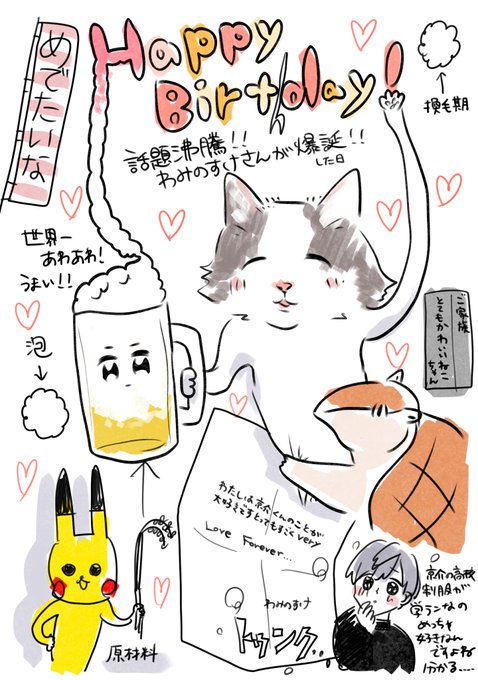 Happy
Birthday!
めでたいな
換毛期
話題沸騰!!
わみのすけさんが爆誕!!
した日
世界一
あわあわ!
うまい!!
泡
ご家族
とてもかわいいねこ
ちゃん
わたしは京介くんのことが
大好きですとってもすごくvery
Love Forever...
わみのすけ
トゥンク..
原材料
京介の高校
制服が
学ランなの
めっちゃ
好きなん
ですよね
分かる....